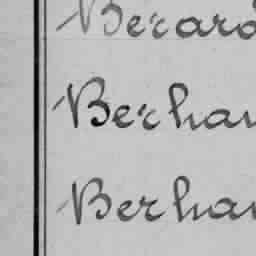 Berard
Berhau
Berhau